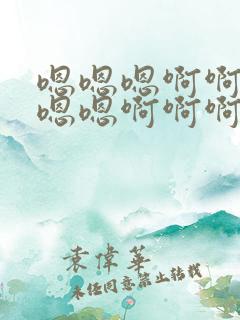 嗯嗯嗯啊啊
嗯嗯啊啊啊
袁偉華
未经同意禁止转载